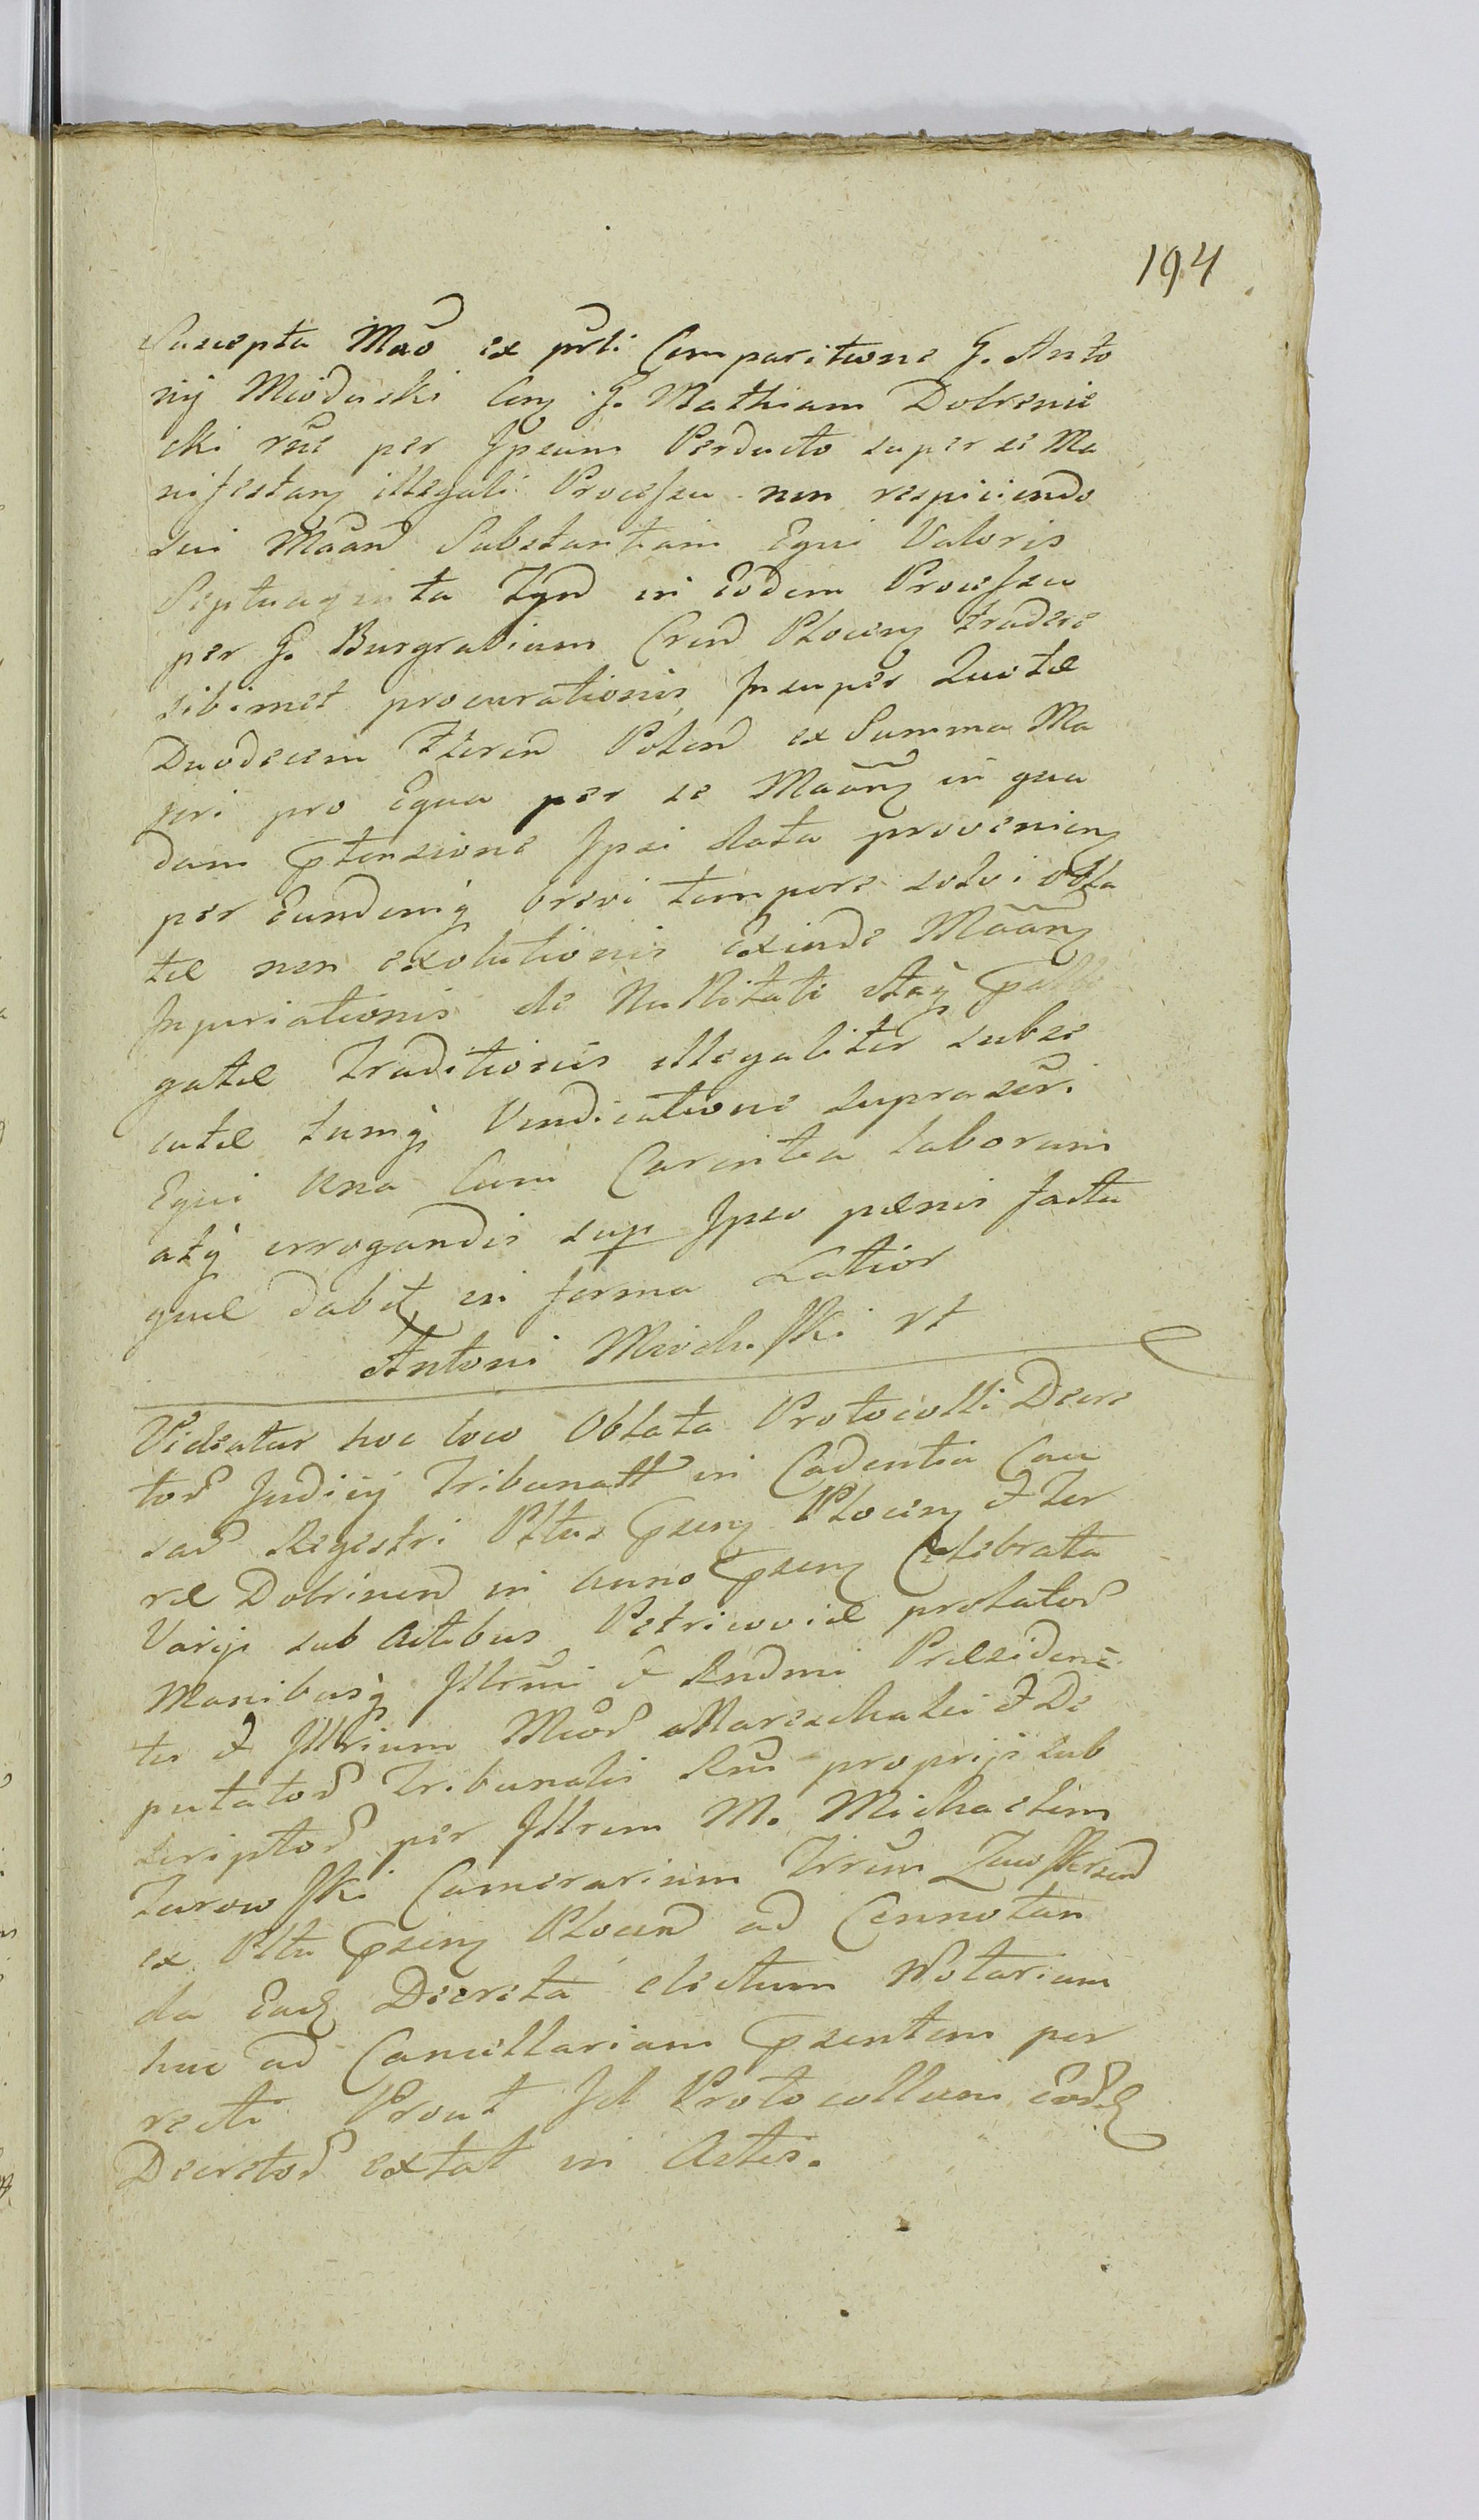 194
Suscepta Mão ex prli Comparitione G. Anto
nij Mioduski Con G. Mathiam Dobrenie
cki rñe per Ipsum Perducto super se Ma
nifestan illegali Processu non respiciendo
sui Mãan Substantiam Equi Valoris
Septuaginta Tyn in Eodem Processu
per G. Burgrabium Cren Plocen tradere
sibimet procurationis, Insuper Quotæ
Duodecem flren Polon ex Summa Ma
jori pro Equa per se Mãan in qua
dam Ptensione Ipsi data provenien
per Eundemq brevi tempore solvi obla
tæ non exolutionis Exinde Mãan
Injuriationis de Nullitati
gatæ Traditionis illegaliter subse
cutæ tumq Vendicatione suprascri
Equi una Cum Carentia laborum
atq irrogandis sup Ipso pœnis facta
quæ dabit in forma Latior
Antoni Mioduski rt
Videatur hoc loco Oblata Protocolli Decre
tor Judicij Tribunall in Cadentia Cau
sar Regestri Pltus Psen Plocen et Ter
ræ Dobrinen in anno Psen Celebrata
Varijs sub Actibus Petricoviæ prolator
Manibusq Illrmi et Rndmi Præsiden
tis et Illrium Mcor Mareschalci et De
putator Tribunalis Rni proprijs sub
scriptor per Illrem M. Michaelem
Zurowski Camerarium Trrum Zawskrzen
ex Pltu Psen Plocen ad Connotan
da Ead Decreta electum Notarium
huc ad Cancellariam Psentem per
recti Prout Id Protocollum Eord
Decretor extat in Actis.